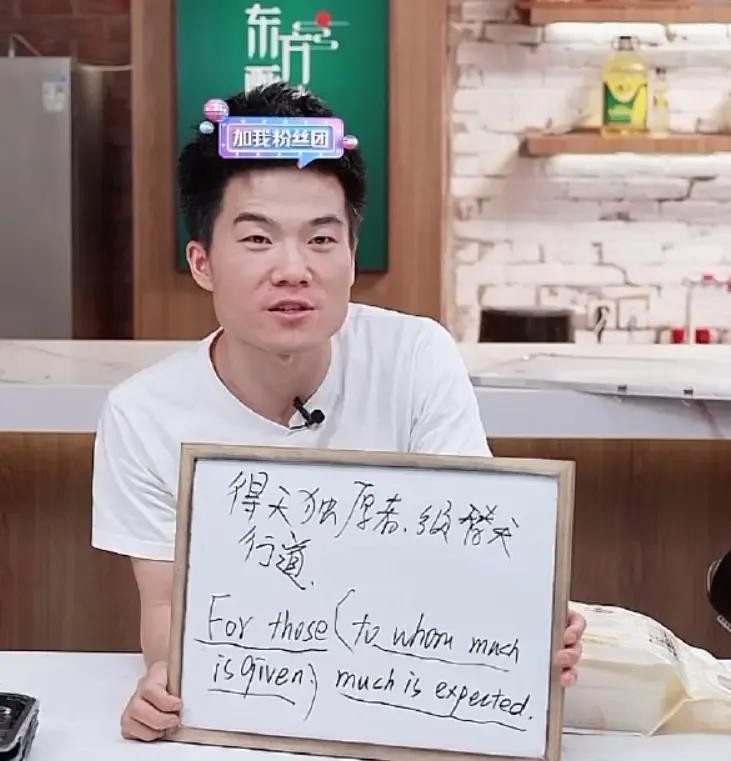 东方
加我粉丝团
得天独厚者、须替天
行道.
For those (to whom much
is given) much is expected.